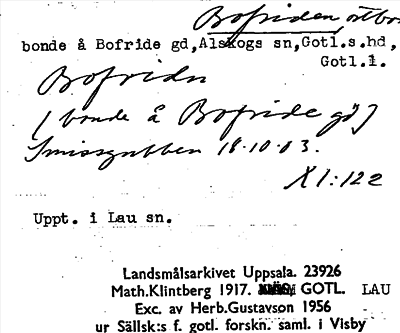 Bofriden
bonde å Bofride gd, Alskogs sn, Gotl.s.hd,
Gotl.l.
Bofridn
[bonde å Bofride gd]
Smissgubben 18.10.03.
XI:122
Uppt. i Lau sn.
Landsmålsarkivet Uppsala. 23926
Math.Klintberg 1917. GOTL. LAU
Exc. av Herb.Gustavson 1956
ur Sällsk:s f. gotl. forskn. saml. i Visby